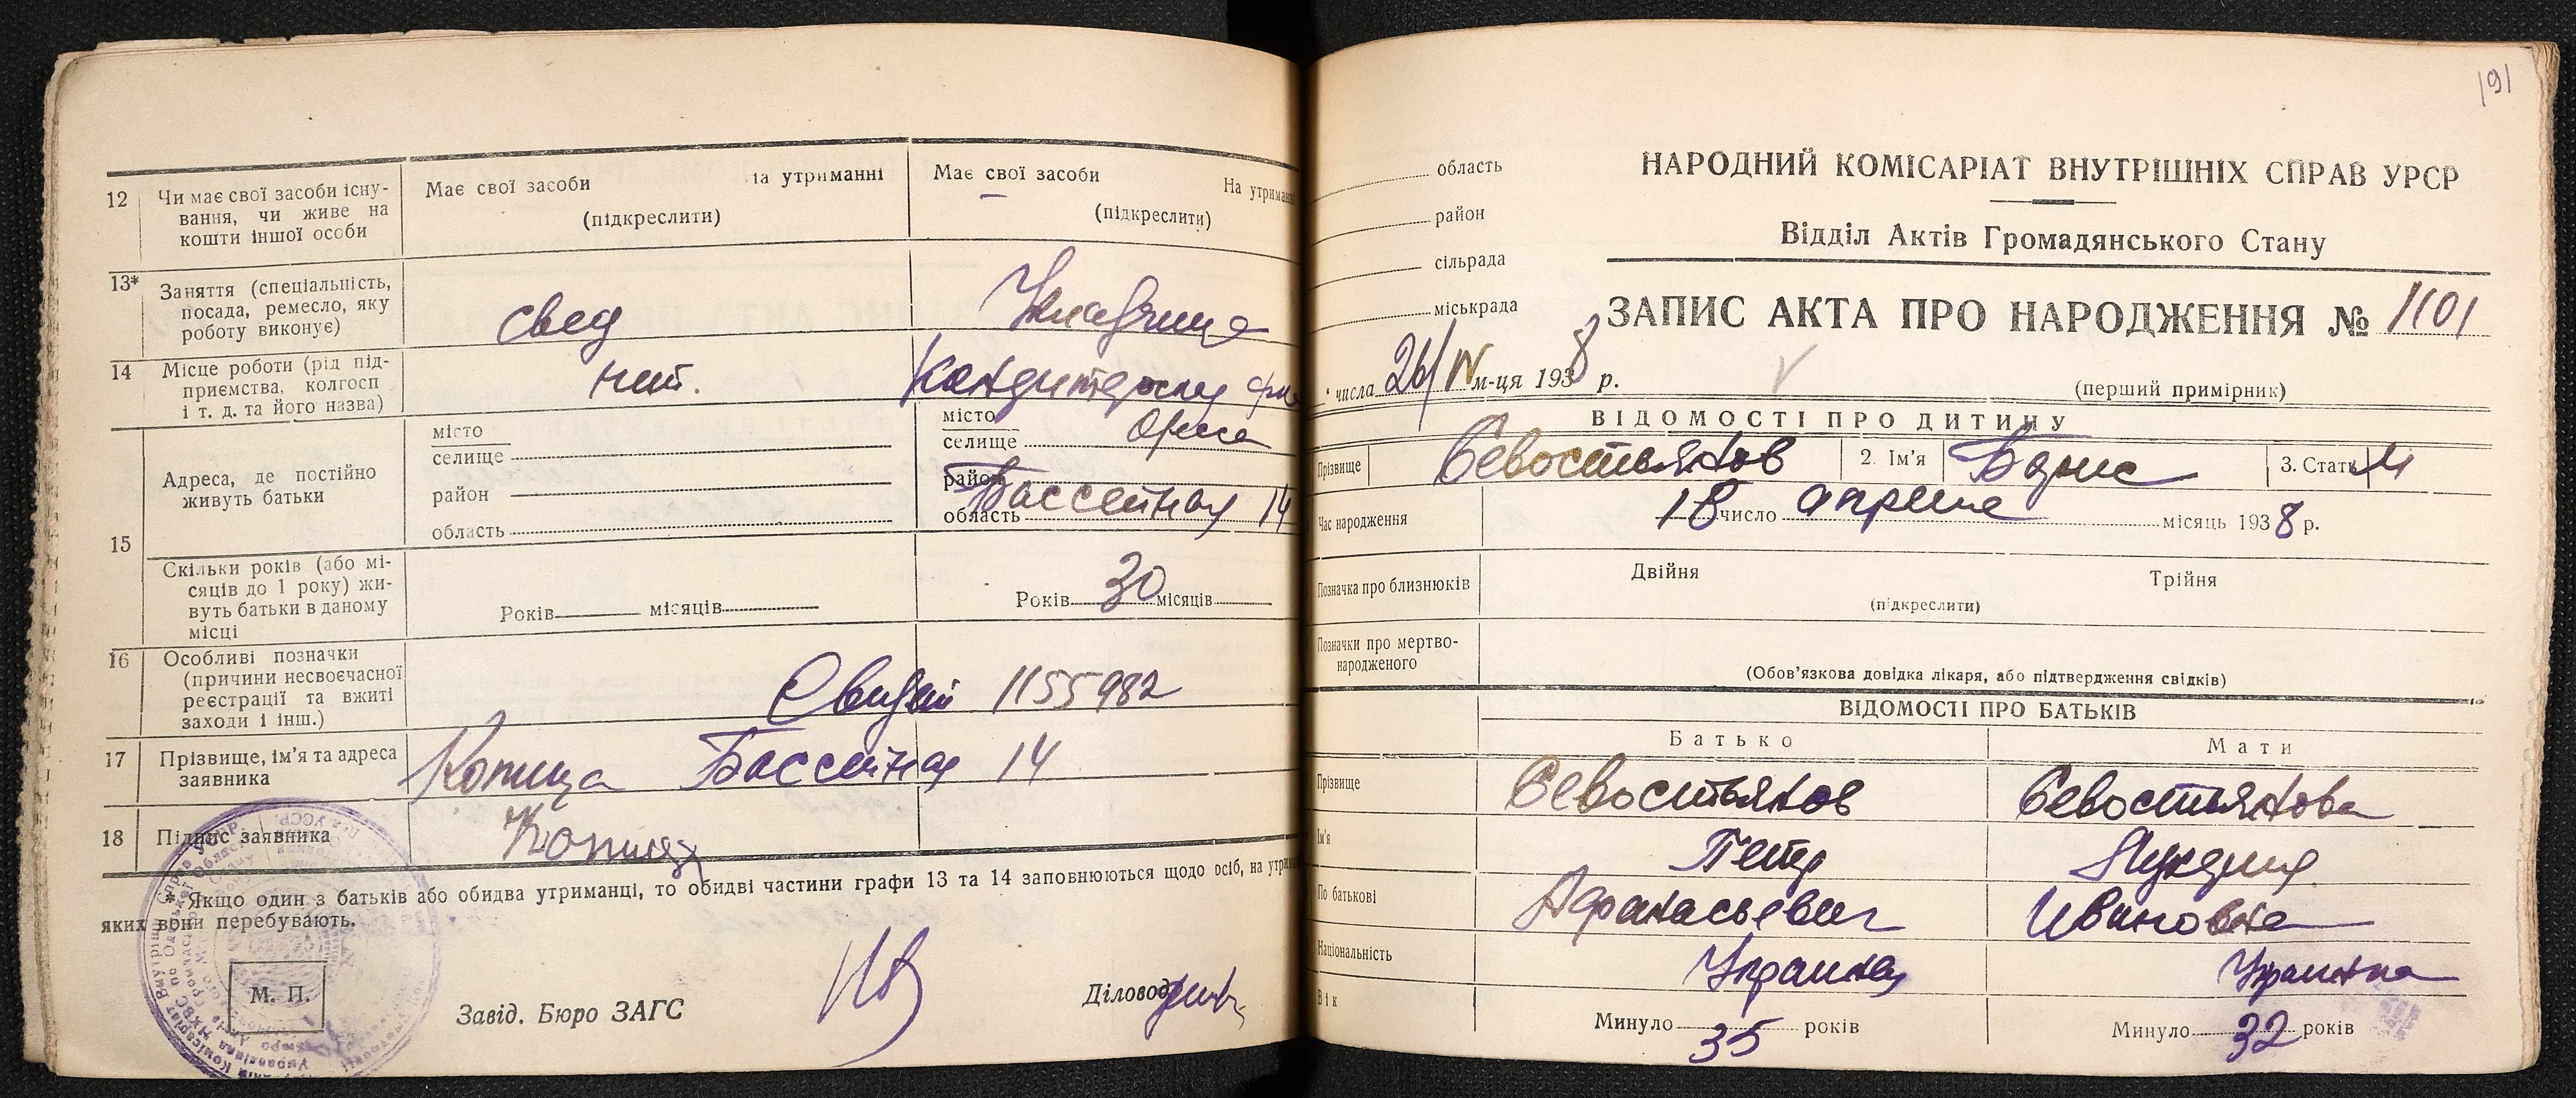 12
Чи має свої засоби існу-
вання, чи живе на
кошти іншої особи
Має свої засоби
на утриманні
(підкреслити)
Має свої засоби
На утриман
(підкреслити)
13*
Заняття (спеціальність,
посада, ремесло, яку
роботу виконує)
свед
14
Місце роботи (рід під-
приємства, колгосп
і т. д. та його назва)
нет.
15
Адреса, де постійно
живуть батьки
місто
селище
район
область
місто
селище
Одесса
район
область
Бассейная 14
Скільки років (або мі-
сяців до 1 року) жи-
вуть батьки в даному
місці
Років місяців
Років 30 місяців
16
Особливі позначки
(причини несвоєчасної
реєстрації та вжиті
заходи і інш.)
1155982
17
Прізвище, ім'я та адреса
заявника
Копица Бассейная 14
18
Підпис заявника
Копица
* Якщо один з батьків або обидва утриманці, то обидві частини графи 13 та 14 заповнюються щодо осіб, на утрим
яких вони перебувають.
М. П.
Завід. Бюро ЗАГС
Діловод
191
область
район
сільрада
міськрада
НАРОДНИЙ КОМІСАРІАТ ВНУТРІШНІХ СПРАВ УРСР
Відділ Актів Громадянського Стану
ЗАПИС АКТА ПРО НАРОДЖЕННЯ № 1101
числа 26/IV м-ця 1938 р.
(перший примірник)
ВІДОМОСТІ ПРО ДИТИНУ
Прізвище
Севостьянов
2. Ім'я
Борис
3. Стать
М
Час народження
18 число апреля місяць 1938 р.
Позначка про близнюків
Двійня
Трійня
(підкреслити)
Позначки про мертво-
народженого
(Обов'язкова довідка лікаря, або підтвердження свідків)
ВІДОМОСТІ ПРО БАТЬКІВ
Батько
Мати
Прізвище
Севостьянов
Севостьянова
Ім'я
Петр
Лукерия
По батькові
Афанасьевич
Ивановна
Національність
Украинец
Украинка
Вік
Минуло 35 років
Минуло 32 років